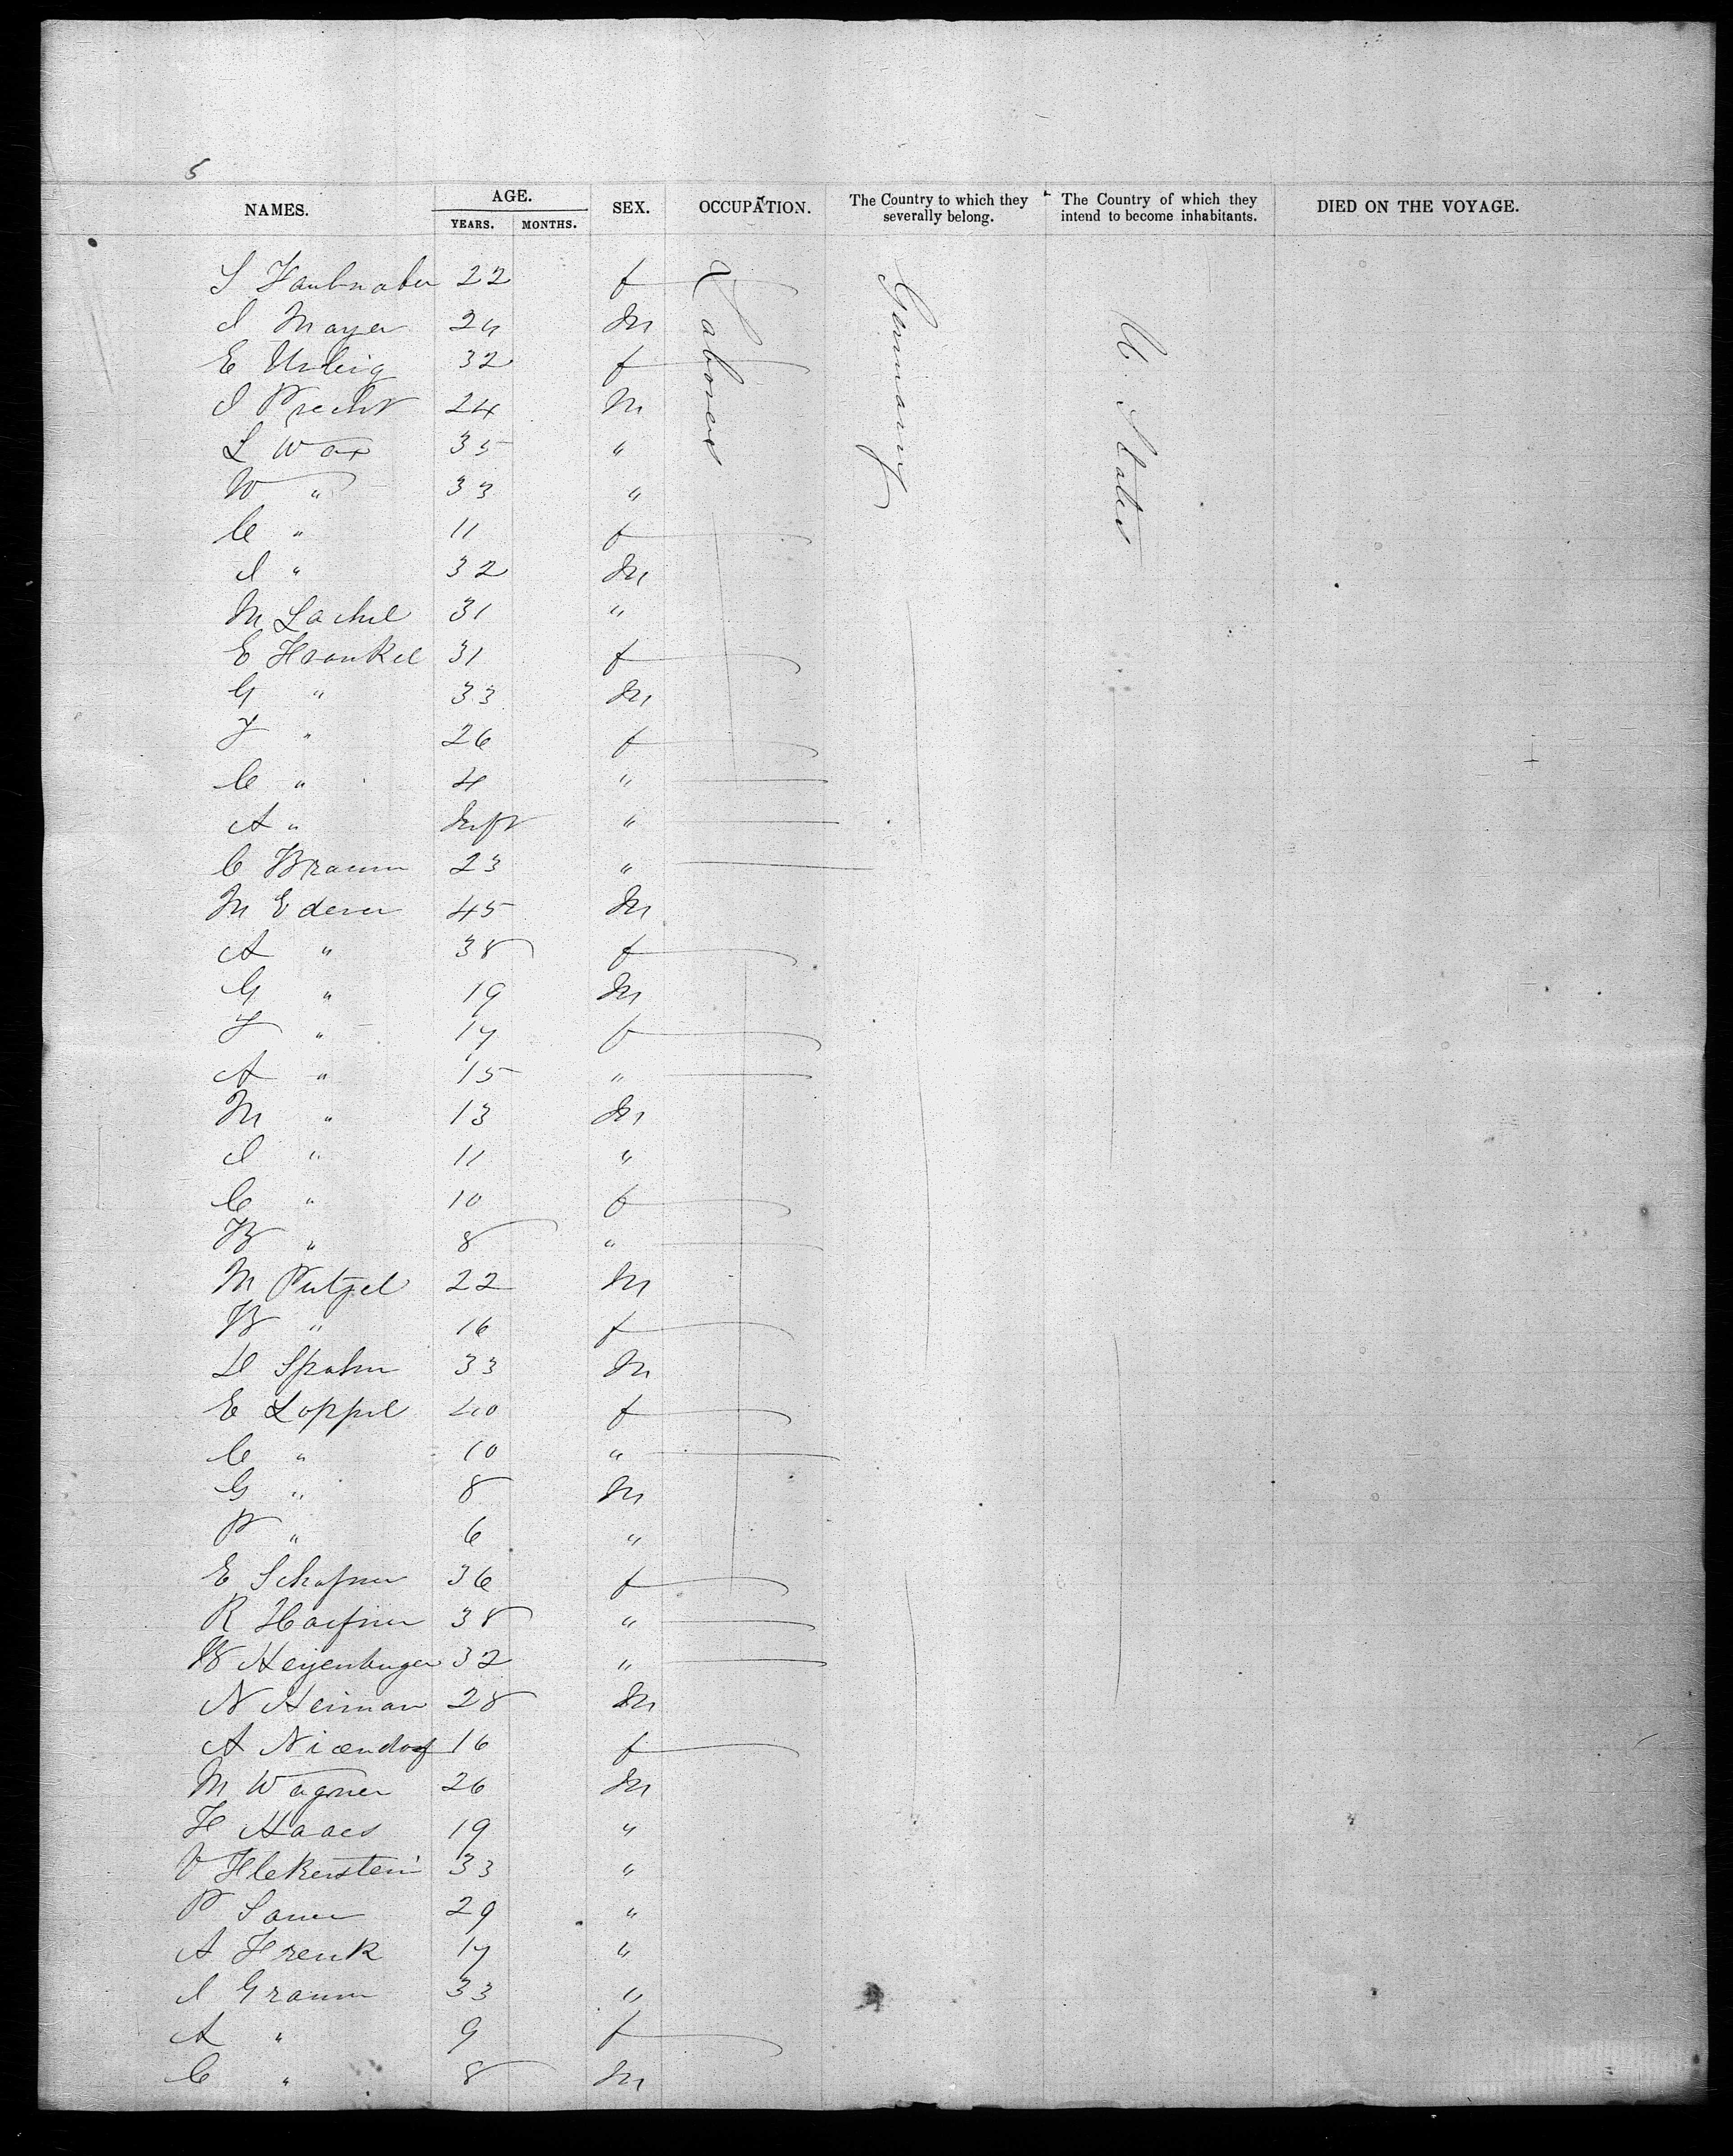 5
NAMES. AGE. YEARS. MONTHS. SEX. OCCUPATION. The Country to which they severally belong. The Country of which they intend to become inhabitants. DIED ON THE VOYAGE.
S 22 f Laborer Germany U. States
J Mayer 24 M
E 32 f
J Precht 24 M
L Wax 35 "
W " 33 "
C " 11 f
J " 32 M
M Lachel 31 "
E Frankel 31 f
G " 33 M
F " 26 f
C " 4 "
A " Inft "
C Braun 23 "
M Ederer 45 M
A " 38 f
G " 19 M
F " 17 f
A " 15 "
M " 13 M
J " 11 "
C " 10 f
B " 8 "
M Putzel 22 M
B " 16 f
D Spahn 33 M
E Loppel 40 f
C " 10 "
G " 8 M
P " 6 "
E Schafner 36 f
R Haefner 38 "
B 32 "
N Heiman 28 M
A 16 f
M Wagner 26 M
F Haaes 19 "
V Flekenstein 33 "
P Sauer 29 "
A Frenk 17 "
J Graum 33 "
A " 9 f
C " 8 M